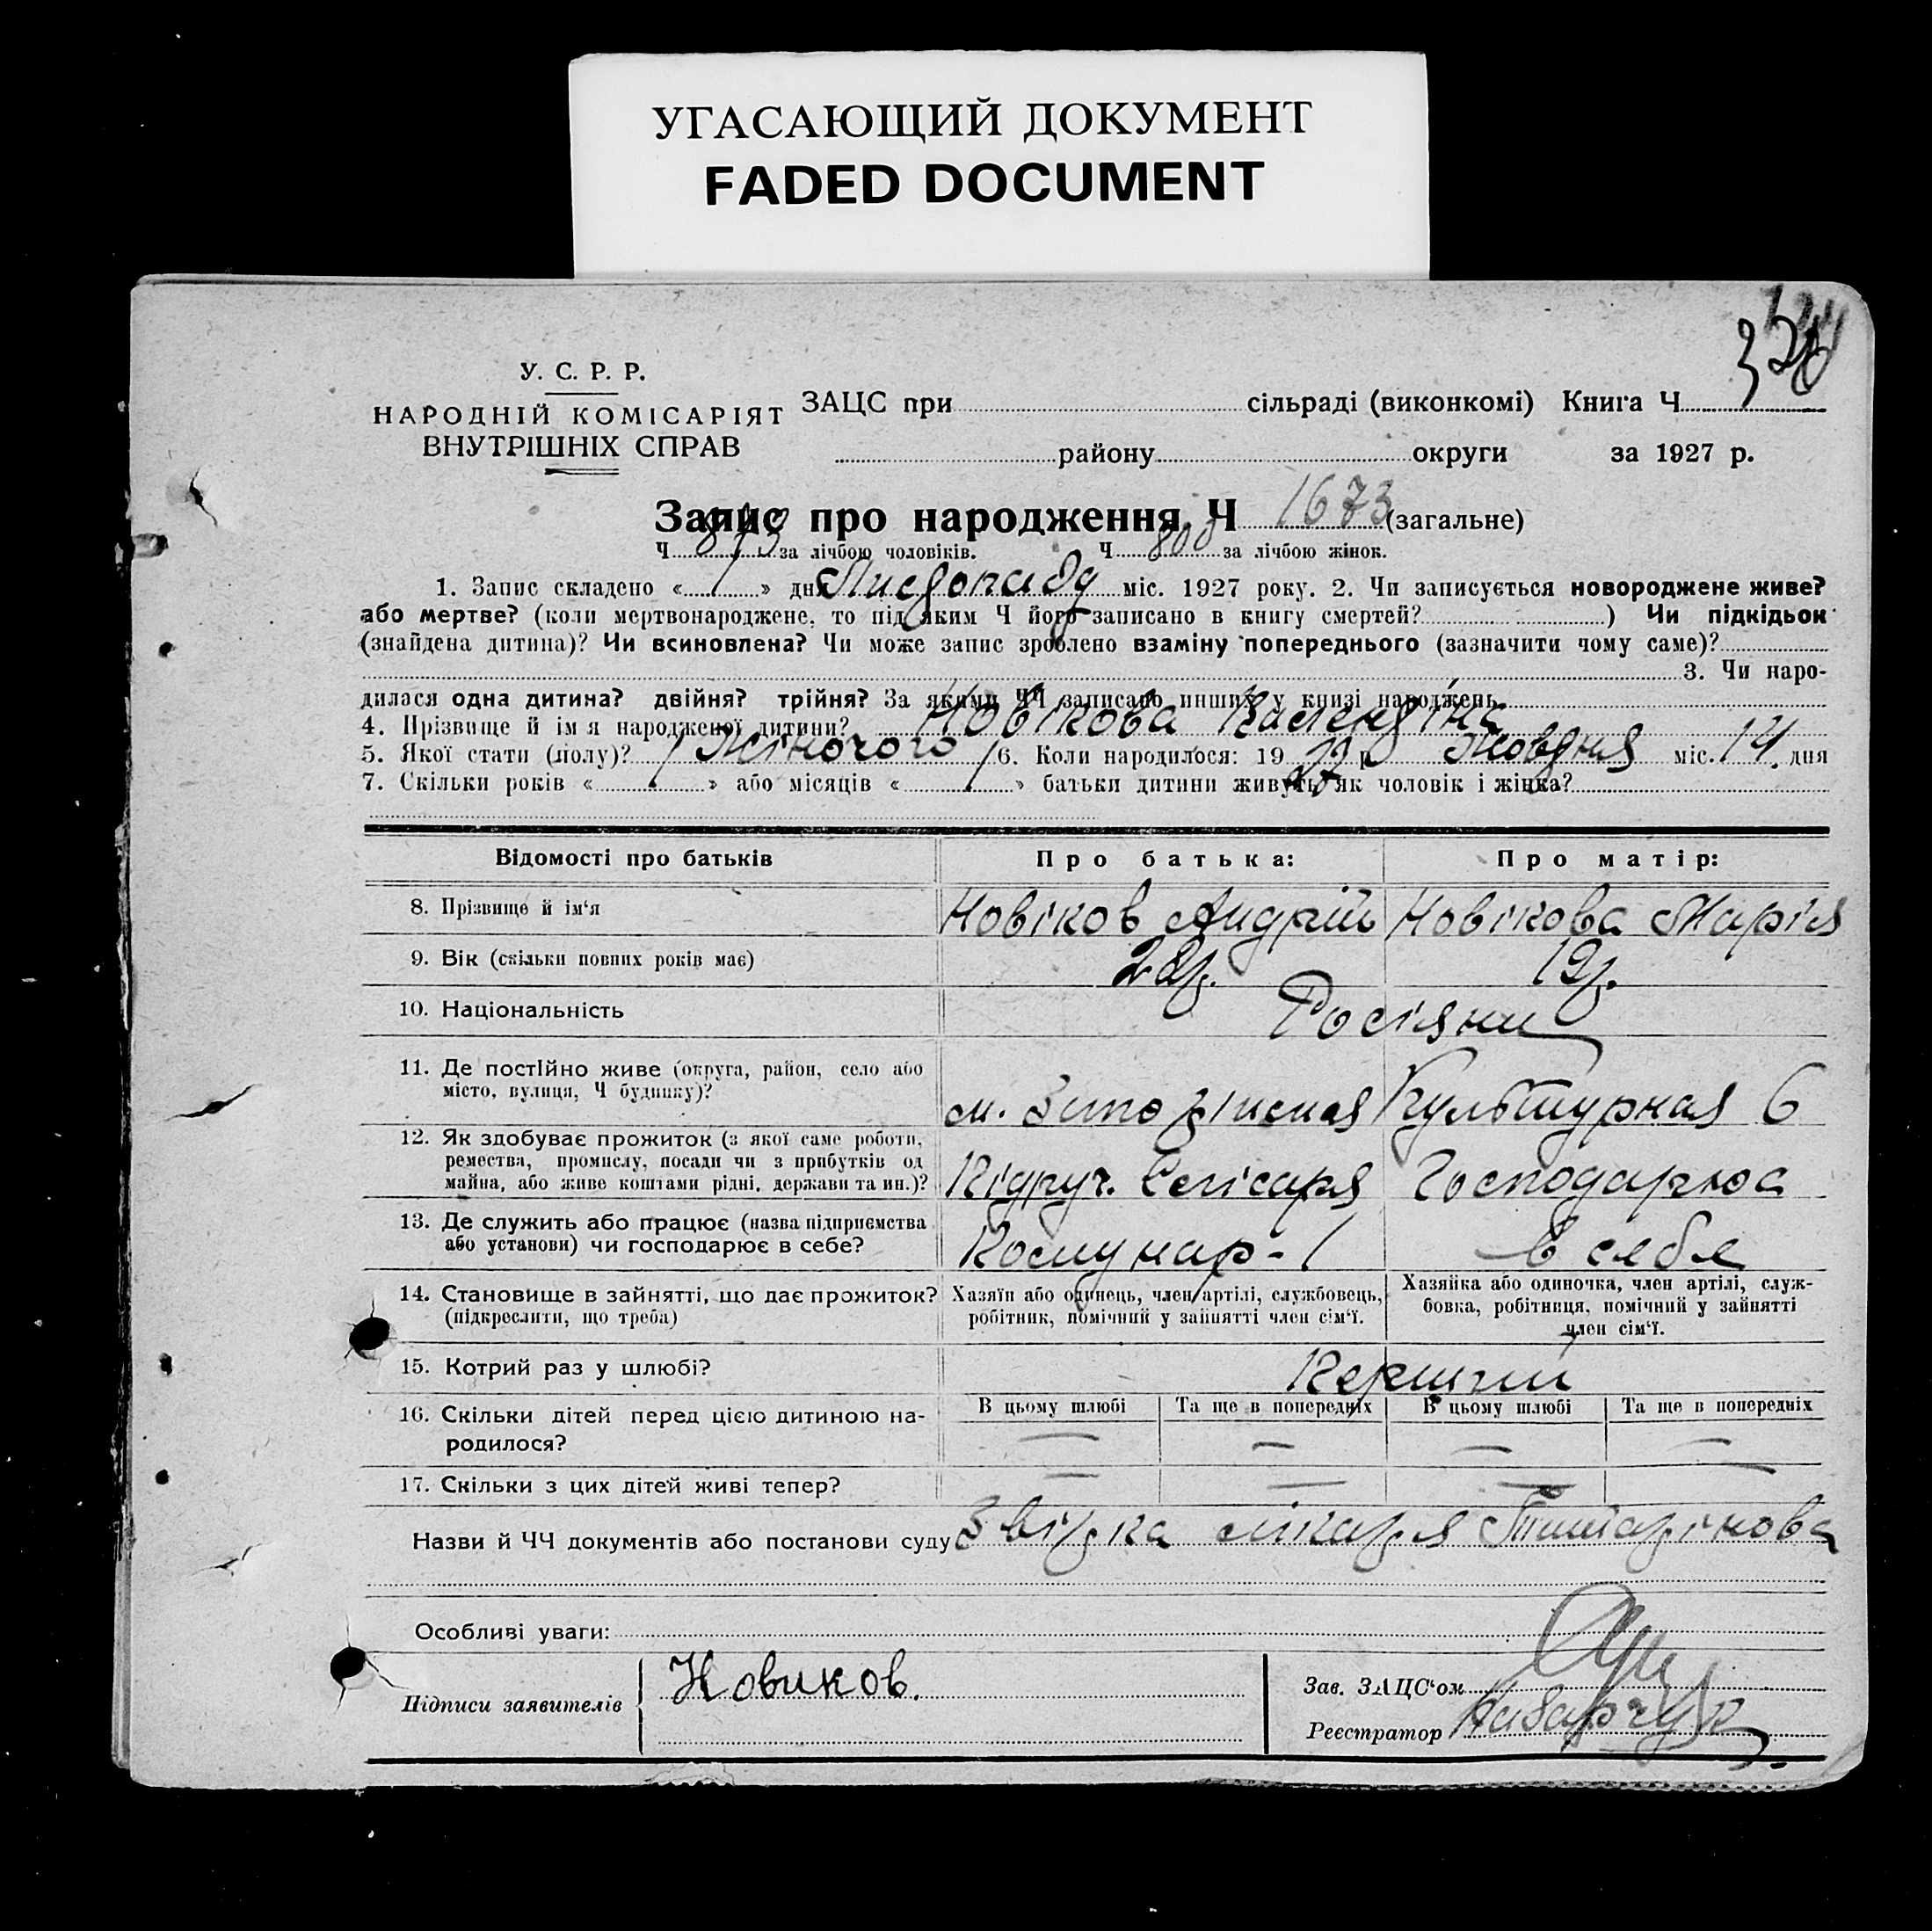 УГАСАЮЩИЙ ДОКУМЕНТ
FADED DOCUMENT
У. С. Р. Р.
НАРОДНІЙ КОМІСАРІЯТ
ВНУТРІШНІХ СПРАВ
ЗАЦС при сільраді (виконкомі) Книга Ч
району округи за 1927 р.
Запис про народження Ч 1673 (загальне)
Ч 873 за лічбою чоловіків. Ч 800 за лічбою жінок.
1. Запис складено « 1 » дня Листопаду міс. 1927 року. 2. Чи записується новороджене живе?
або мертве? (коли мертвонароджене, то під яким Ч його записано в книгу смертей? ) Чи підкідьок
(знайдена дитина)? Чи всиновлена? Чи може запис зроблено взаміну попереднього (зазначити чому саме)?
3. Чи наро-
дилася одна дитина? двійня? трійня? За якими ЧЧ записано инших у книзі народжень
4. Прізвище й ім я народженої дитини? Новікова Валентіна
5. Якої статі (полу)? Жіночого 6. Коли народилося: 19 27 р Жовтня міс. 14 дня
7. Скільки років « » або місяців « » батьки дитини живуть як чоловік і жінка?
Відомості про батьків Про батька: Про матір:
8. Прізвище й ім'я Новіков Андрій Новікова Марія
9. Вік (скільки повних років має) 22р. 19р.
10. Національність Росіяни
11. Де постійно живе (округа, район, село або
місто, вулиця, Ч будинку)?
Культурная 6
12. Як здобуває прожиток (з якої саме роботи,
ремества, промислу, посади чи з прибутків од
майна, або живе коштами рідні, держави та ин.)?
Підруч. Слісаря Господарюа
13. Де служить або працює (назва підприємства
або установи) чи господарює в себе?
Комунар-1 в себе
14. Становище в зайнятті, що дає прожиток?
(підкреслити, що треба)
Хазяїн або одинець, член артілі, службовець,
робітник, помічний у зайнятті член сім'ї.
Хазяйка або одиночка, член артілі, служ-
бовка, робітниця, помічний у зайнятті
член сім'ї.
15. Котрий раз у шлюбі? Перший
16. Скільки дітей перед цією дитиною на-
родилося?
В цьому шлюбі Та ще в попередніх В цьому шлюбі Та ще в попередніх
— — — —
17. Скільки з цих дітей живі тепер? — — — —
Назви й ЧЧ документів або постанови суду Звістка лікаря
Особливі уваги:
Підписи заявителів Новиков.
Зав. ЗАЦС'ом
Реєстратор Назарчук